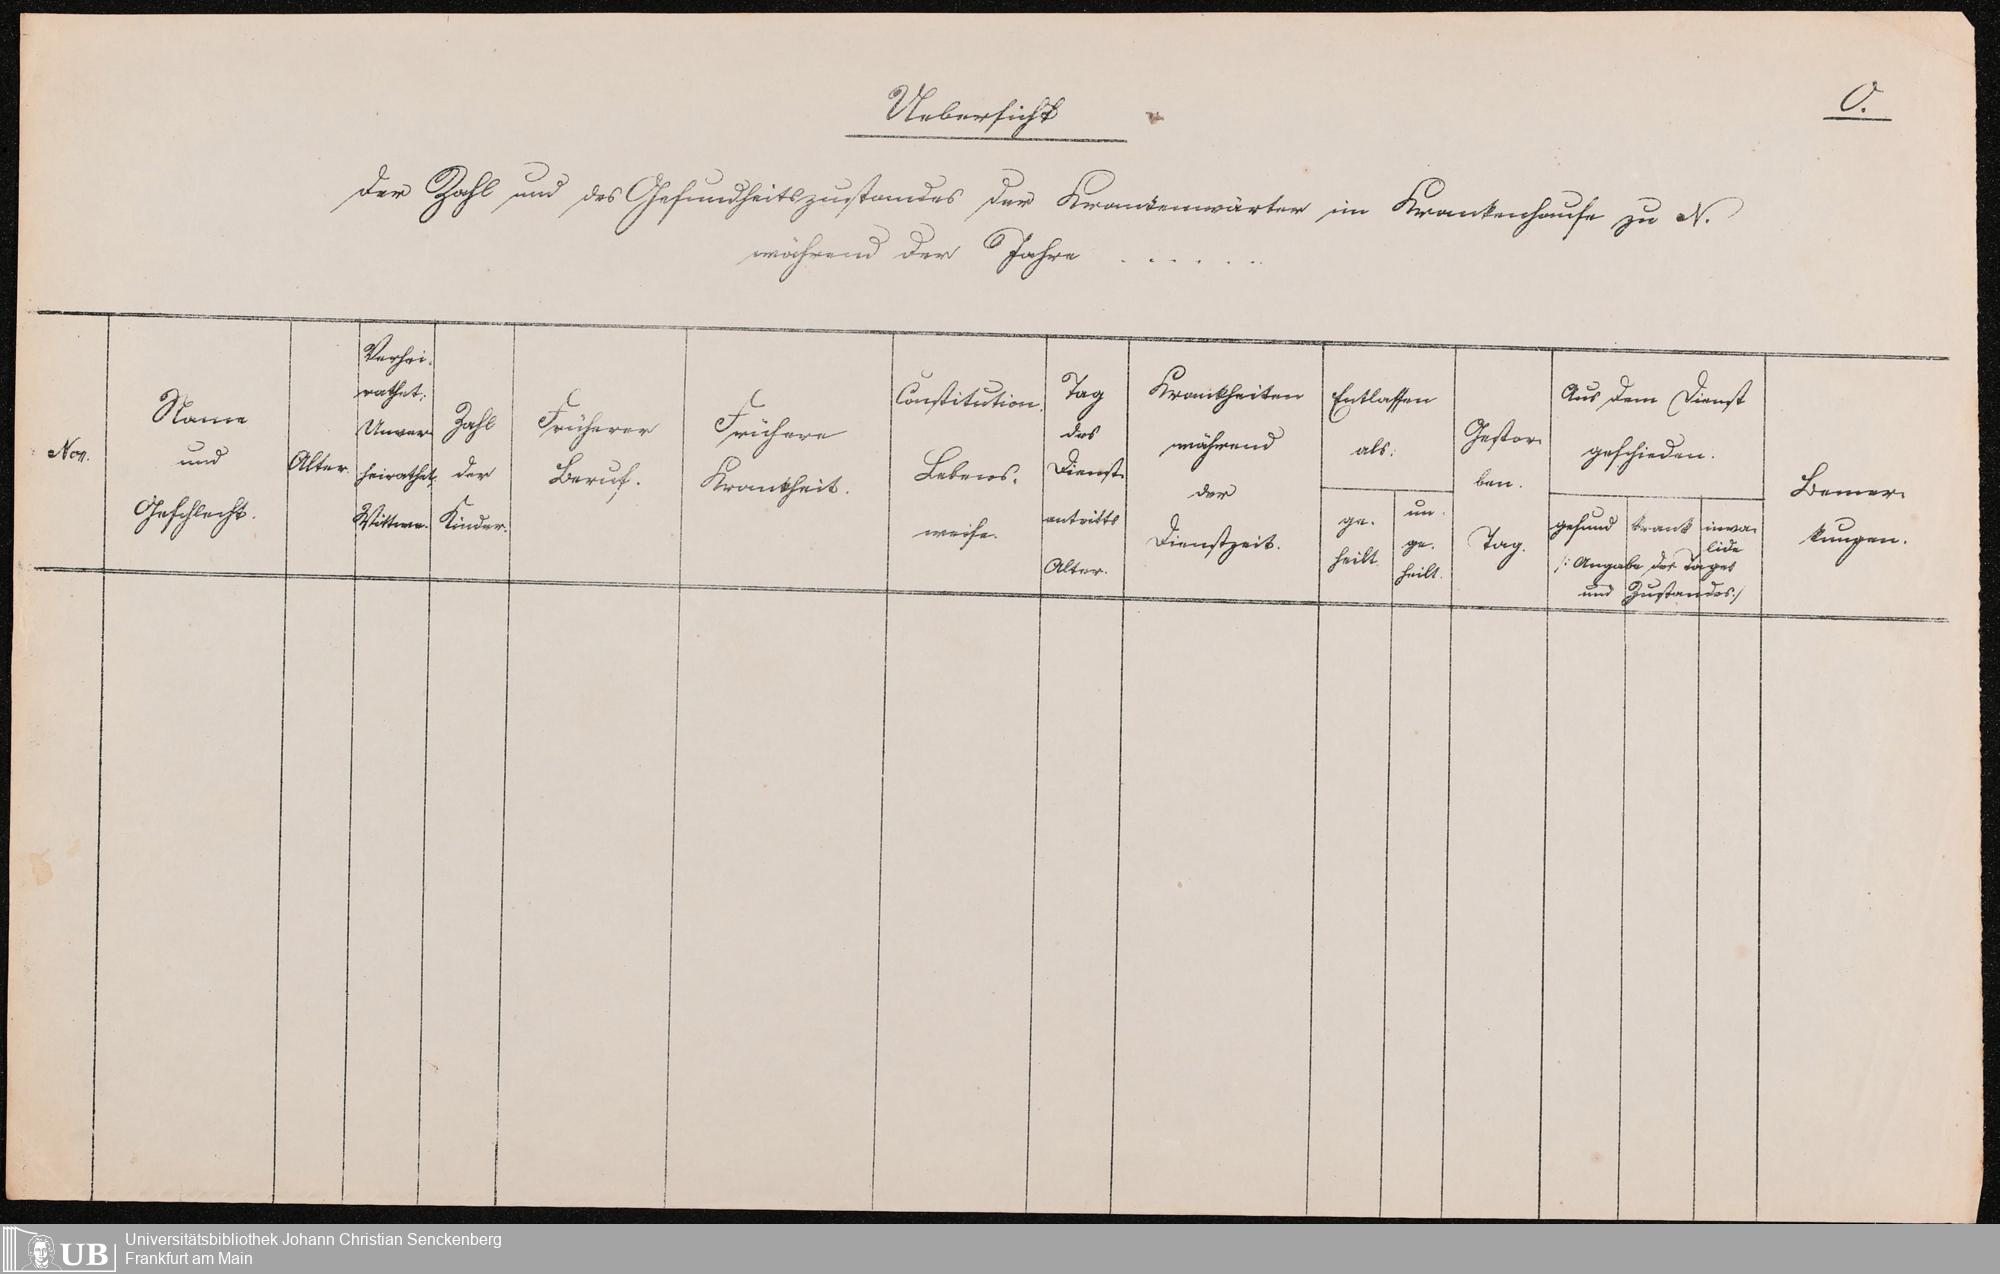 Uebersicht
O.
der Zahl und des Gesundheitszustandes der Krankenwärter im Krankenhause zu N.
während der Jahre . . . . . .
Nor.
Name
und
Geschlecht.
Alter.
Verhei-
rathet;
Unver-
heirathet;
Wittwe.
Zahl
der
Kinder.
Früherer
Beruf.
Frühere
Krankheit.
Constitution.
Lebens-
weise.
Tag
des
Dienst-
antritts
Alter.
Krankheiten
während
der
Dienstzeit.
Entlassen
als:
ge-
heilt.
un-
ge-
heilt.
Gestor-
ben.
Tag.
Aus dem Dienst
geschieden.
gesund
krank
inva-
lide
/: Angabe des Tages
und Zustandes :/
Bemer-
kungen.
UB
Universitätsbibliothek Johann Christian Senckenberg
Frankfurt am Main